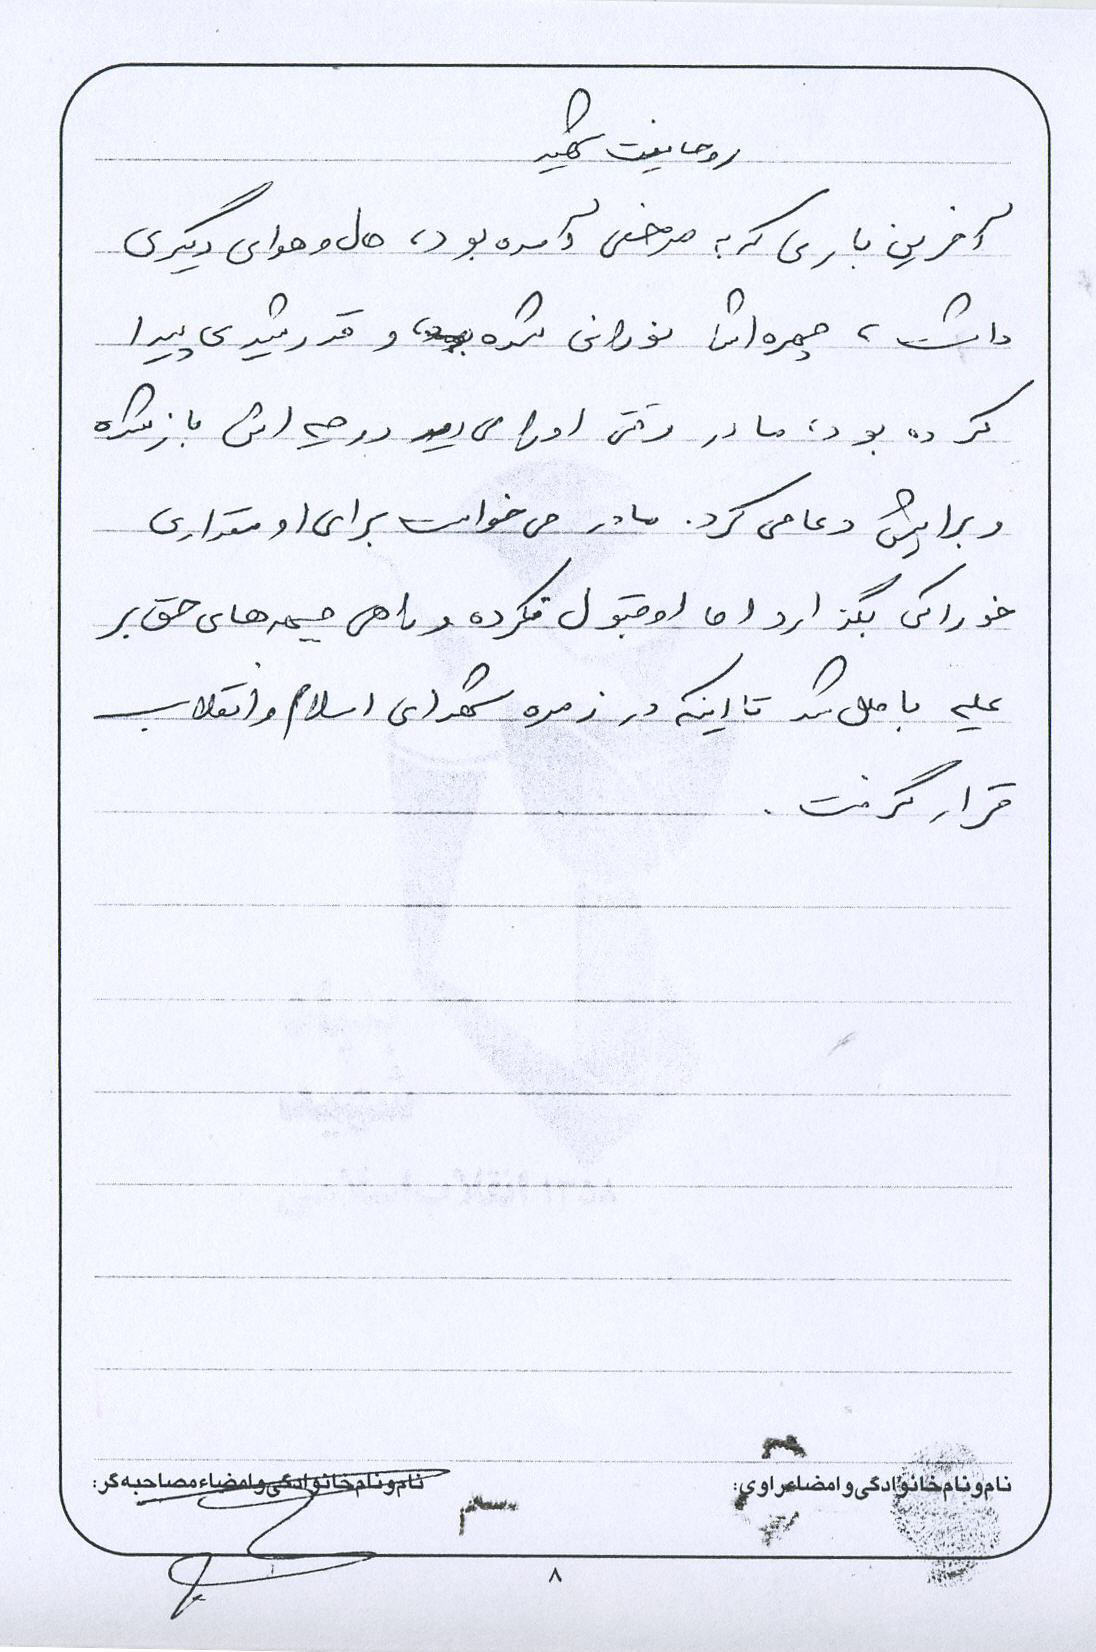 روحانیت شهید
آخرین باری که به مرخصی آمده بود، حال و هوای دیگری
داشت، چهره‌اش نورانی شده و قد رشیدی پیدا
کرده بود، مادر وقتی او را می‌دید در چهره‌اش باز شده
و برایش دعا می‌کرد. مادر می‌خواست برای او مقداری
خوراکی بگذارد اما او قبول نکرده و راهی جبهه‌های حق بر
علیه باطل شد تا اینکه در زمره شهدای اسلام و انقلاب
قرار گرفت.
نام و نام خانوادگی و امضاء راوی:
نام و نام خانوادگی و امضاء مصاحبه گر:
۸